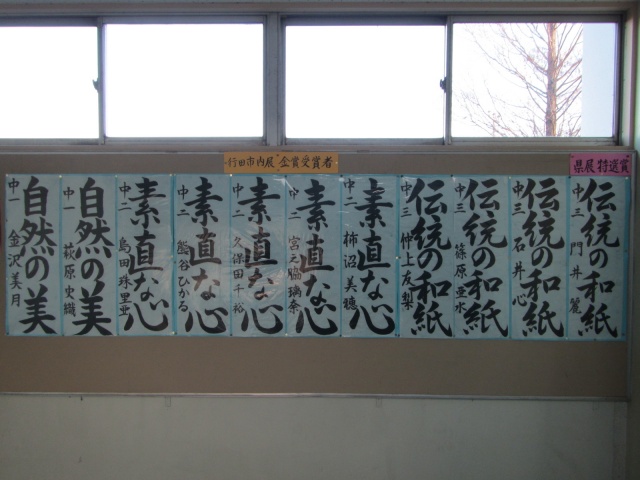 県展"特選賞"
行田市内展"企賞受賞者
伝統の和紙
中三 門井麗
伝統の和紙
中三 石井心
伝統の和紙
中三 篠原亜水
伝統の和紙
中三 仲上友梨
素直な心
中二 柿沼美穂
素直な心
中二 宮之脇璃奈
素直な心
中二 久保田千裕
素直な心
中二 熊谷ひかる
素直な心
中二 島田珠里亜
自然の美
中一 萩原史織
自然の美
中一 金沢美月